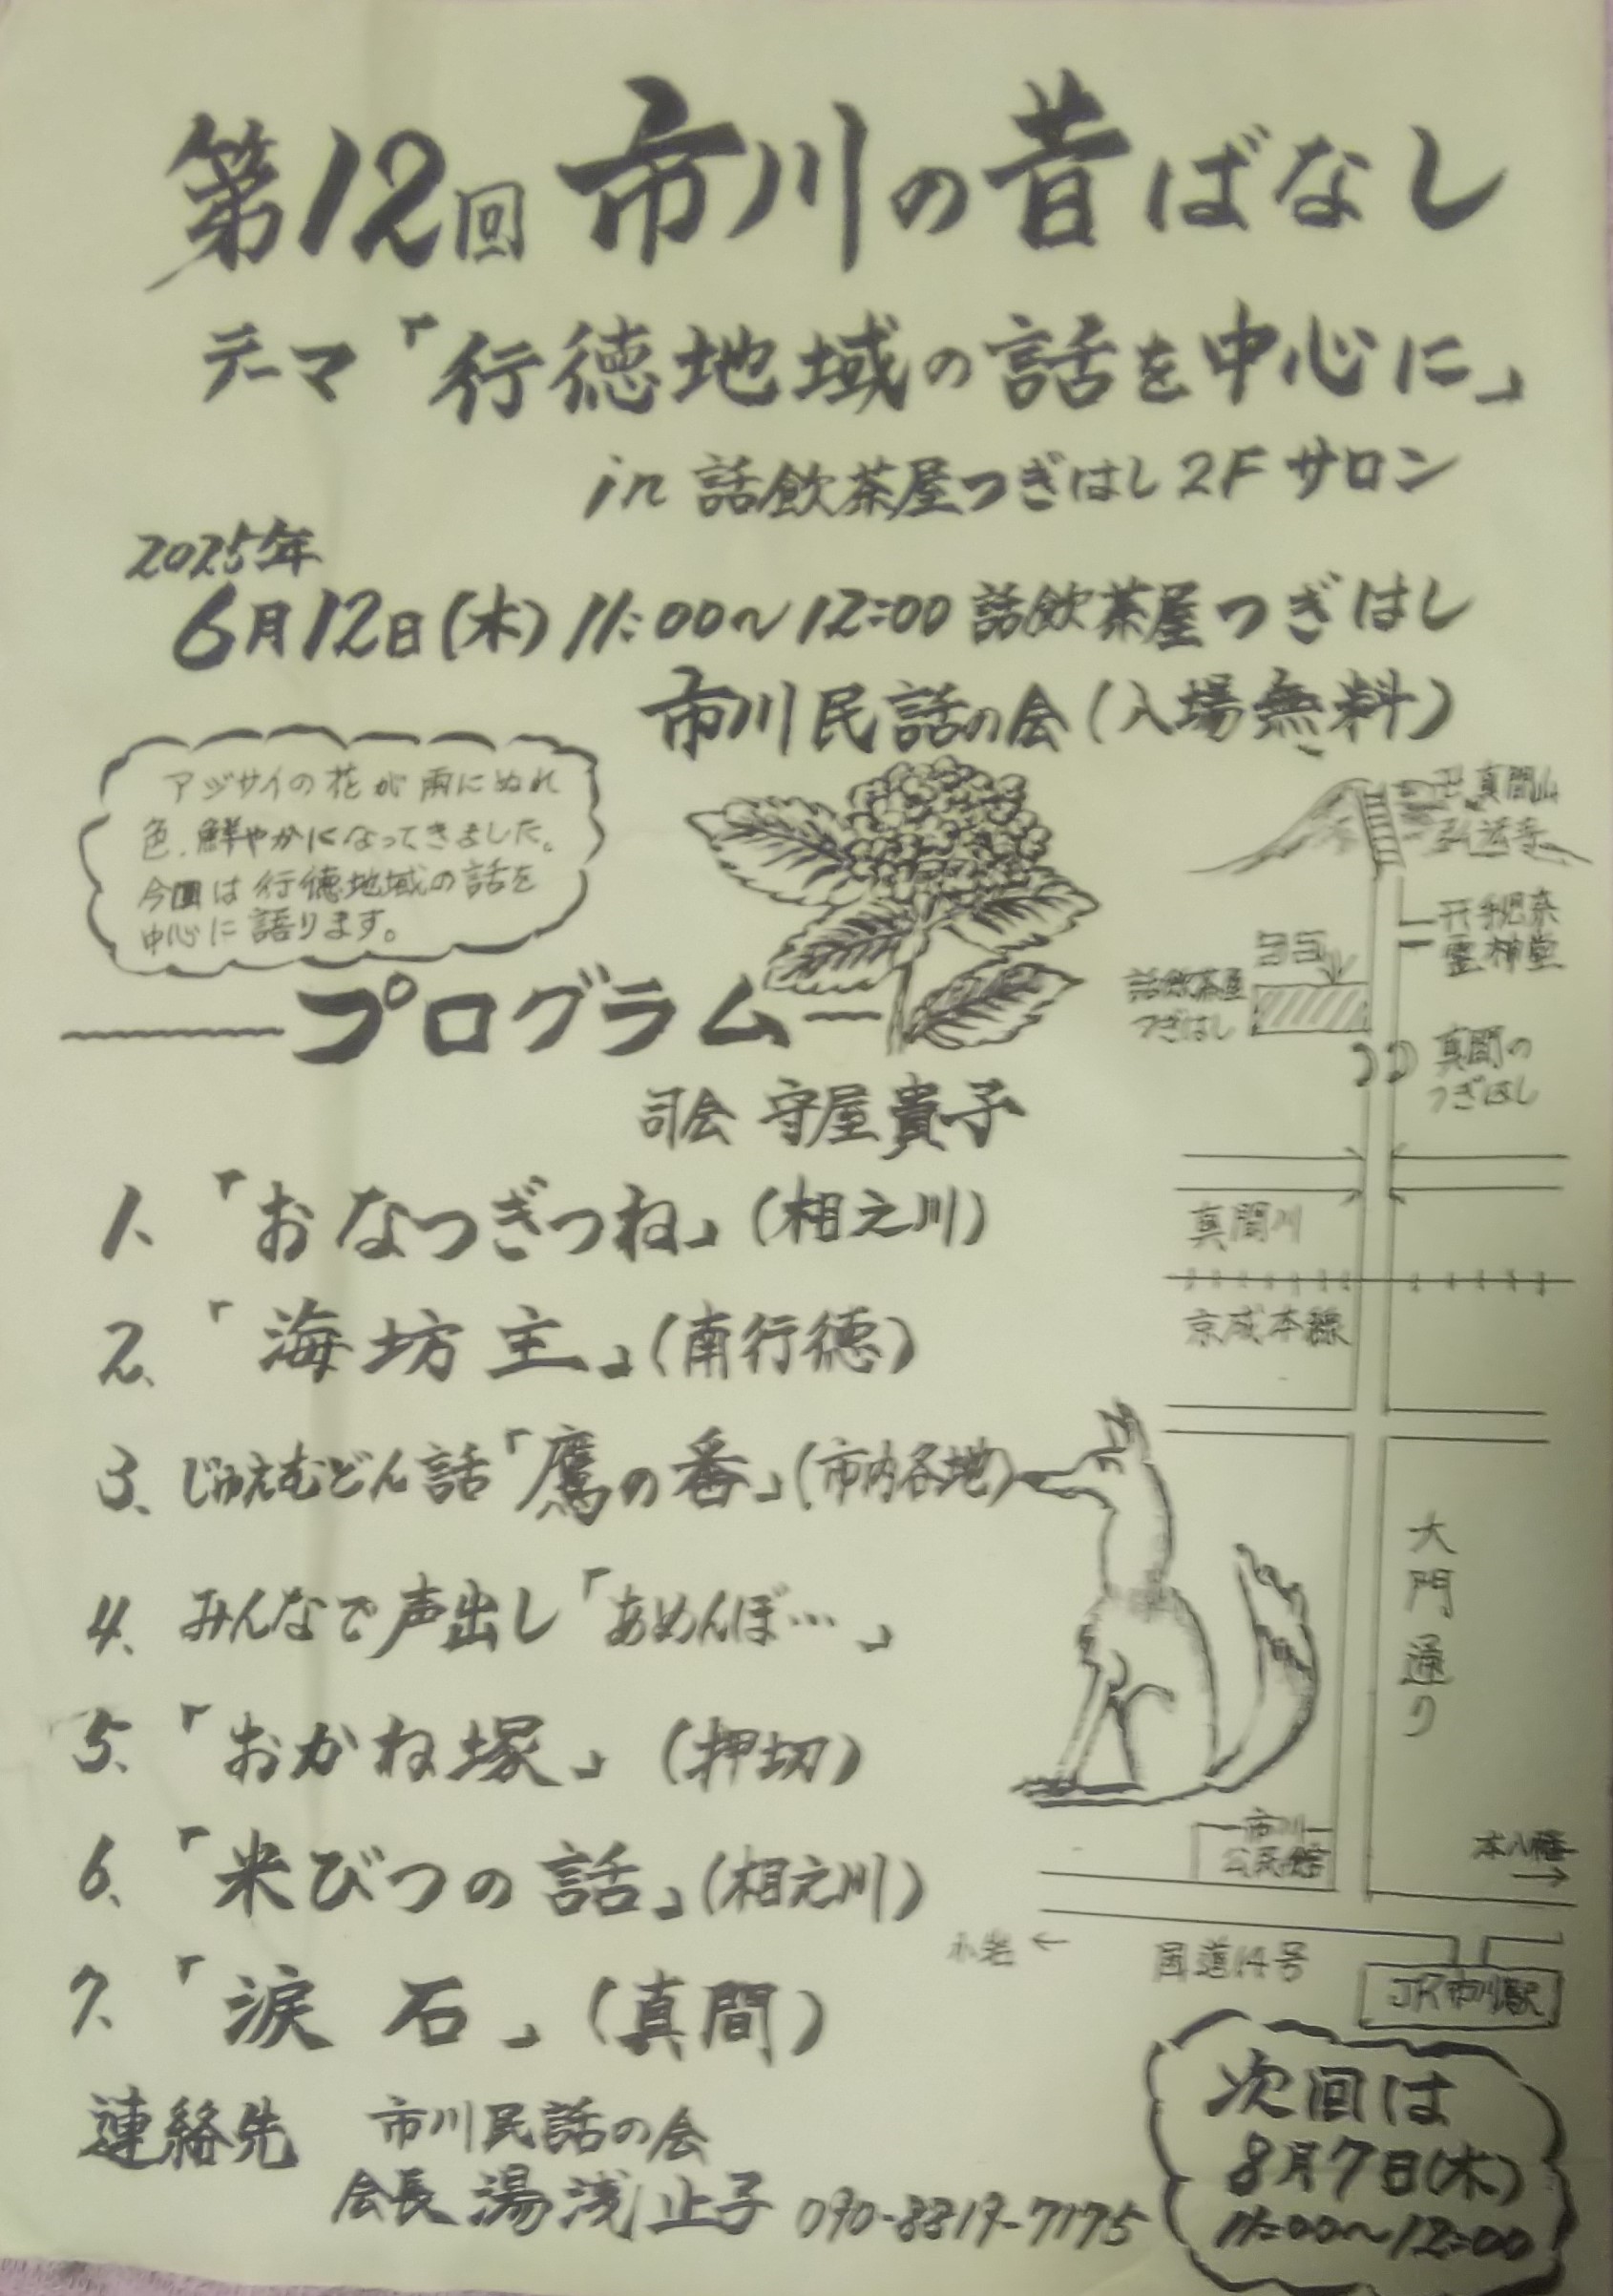 第12回 市川の昔ばなし
テーマ「行徳地域の話を中心に」
in 話飲茶屋つぎはし 2F サロン
2025年
6月12日(木) 11:00～12:00 話飲茶屋つぎはし
市川民話の会(入場無料)
アジサイの花が雨にぬれ
色、鮮やかになってきました。
今回は行徳地域の話を
中心に語ります。
プログラム
司会 守屋貴子
1、「おなつぎつね」(相之川)
2、「海坊主」(南行徳)
3、じゅえむどん話「鷹の番」(市内各地)
4、みんなで声出し「あめんぼ…」
5、「おかね塚」(押切)
6、「米びつの話」(相之川)
7、「涙石」(真間)
連絡先 市川民話の会
会長 湯浅止子 090-8819-7175
卍真間山
弘法寺
手児奈
霊神堂
ココ
話飲茶屋
つぎはし
真間の
つぎはし
真間川
京成本線
大門通り
市川
公民館
本八幡
→
小岩 ←
国道14号
JR市川駅
次回は
8月7日(木)
11:00～12:00